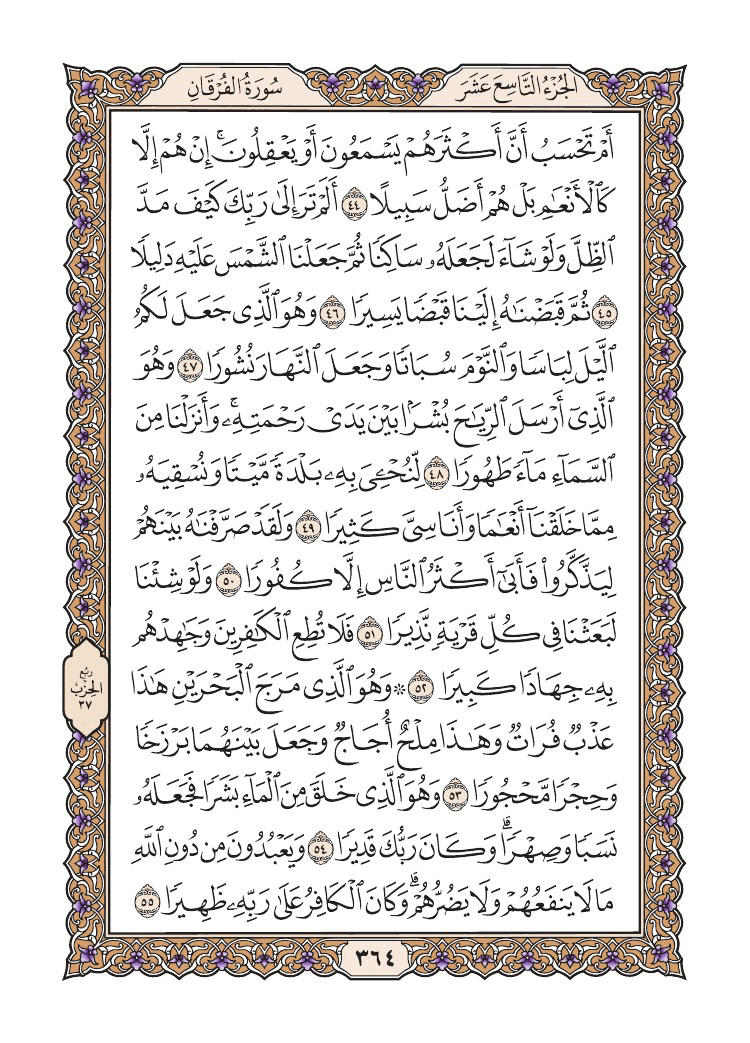 الجُزْءُ التَّاسِعَ عَشَرَ
سُورَةُ الفُرْقَانِ
أَمْ تَحْسَبُ أَنَّ أَكْثَرَهُمْ يَسْمَعُونَ أَوْ يَعْقِلُونَۚ إِنْ هُمْ إِلَّا
كَٱلْأَنْعَٰمِ بَلْ هُمْ أَضَلُّ سَبِيلًا ٤٤ أَلَمْ تَرَ إِلَىٰ رَبِّكَ كَيْفَ مَدَّ
ٱلظِّلَّ وَلَوْ شَآءَ لَجَعَلَهُۥ سَاكِنًا ثُمَّ جَعَلْنَا ٱلشَّمْسَ عَلَيْهِ دَلِيلًا
٤٥ ثُمَّ قَبَضْنَٰهُ إِلَيْنَا قَبْضًا يَسِيرًا ٤٦ وَهُوَ ٱلَّذِى جَعَلَ لَكُمُ
ٱلَّيْلَ لِبَاسًا وَٱلنَّوْمَ سُبَاتًا وَجَعَلَ ٱلنَّهَارَ نُشُورًا ٤٧ وَهُوَ
ٱلَّذِىٓ أَرْسَلَ ٱلرِّيَٰحَ بُشْرًۢا بَيْنَ يَدَىْ رَحْمَتِهِۦۚ وَأَنزَلْنَا مِنَ
ٱلسَّمَآءِ مَآءً طَهُورًا ٤٨ لِّنُحْـِۧىَ بِهِۦ بَلْدَةً مَّيْتًا وَنُسْقِيَهُۥ
مِمَّا خَلَقْنَآ أَنْعَٰمًا وَأَنَاسِىَّ كَثِيرًا ٤٩ وَلَقَدْ صَرَّفْنَٰهُ بَيْنَهُمْ
لِيَذَّكَّرُوا۟ فَأَبَىٰٓ أَكْثَرُ ٱلنَّاسِ إِلَّا كُفُورًا ٥٠ وَلَوْ شِئْنَا
لَبَعَثْنَا فِى كُلِّ قَرْيَةٍ نَّذِيرًا ٥١ فَلَا تُطِعِ ٱلْكَٰفِرِينَ وَجَٰهِدْهُم
بِهِۦ جِهَادًا كَبِيرًا ٥٢ ۞ وَهُوَ ٱلَّذِى مَرَجَ ٱلْبَحْرَيْنِ هَٰذَا
عَذْبٌ فُرَاتٌ وَهَٰذَا مِلْحٌ أُجَاجٌ وَجَعَلَ بَيْنَهُمَا بَرْزَخًا
وَحِجْرًا مَّحْجُورًا ٥٣ وَهُوَ ٱلَّذِى خَلَقَ مِنَ ٱلْمَآءِ بَشَرًا فَجَعَلَهُۥ
نَسَبًا وَصِهْرًاۗ وَكَانَ رَبُّكَ قَدِيرًا ٥٤ وَيَعْبُدُونَ مِن دُونِ ٱللَّهِ
مَا لَا يَنفَعُهُمْ وَلَا يَضُرُّهُمْۗ وَكَانَ ٱلْكَافِرُ عَلَىٰ رَبِّهِۦ ظَهِيرًا ٥٥
رُبع
الحِزب
٣٧
٣٦٤